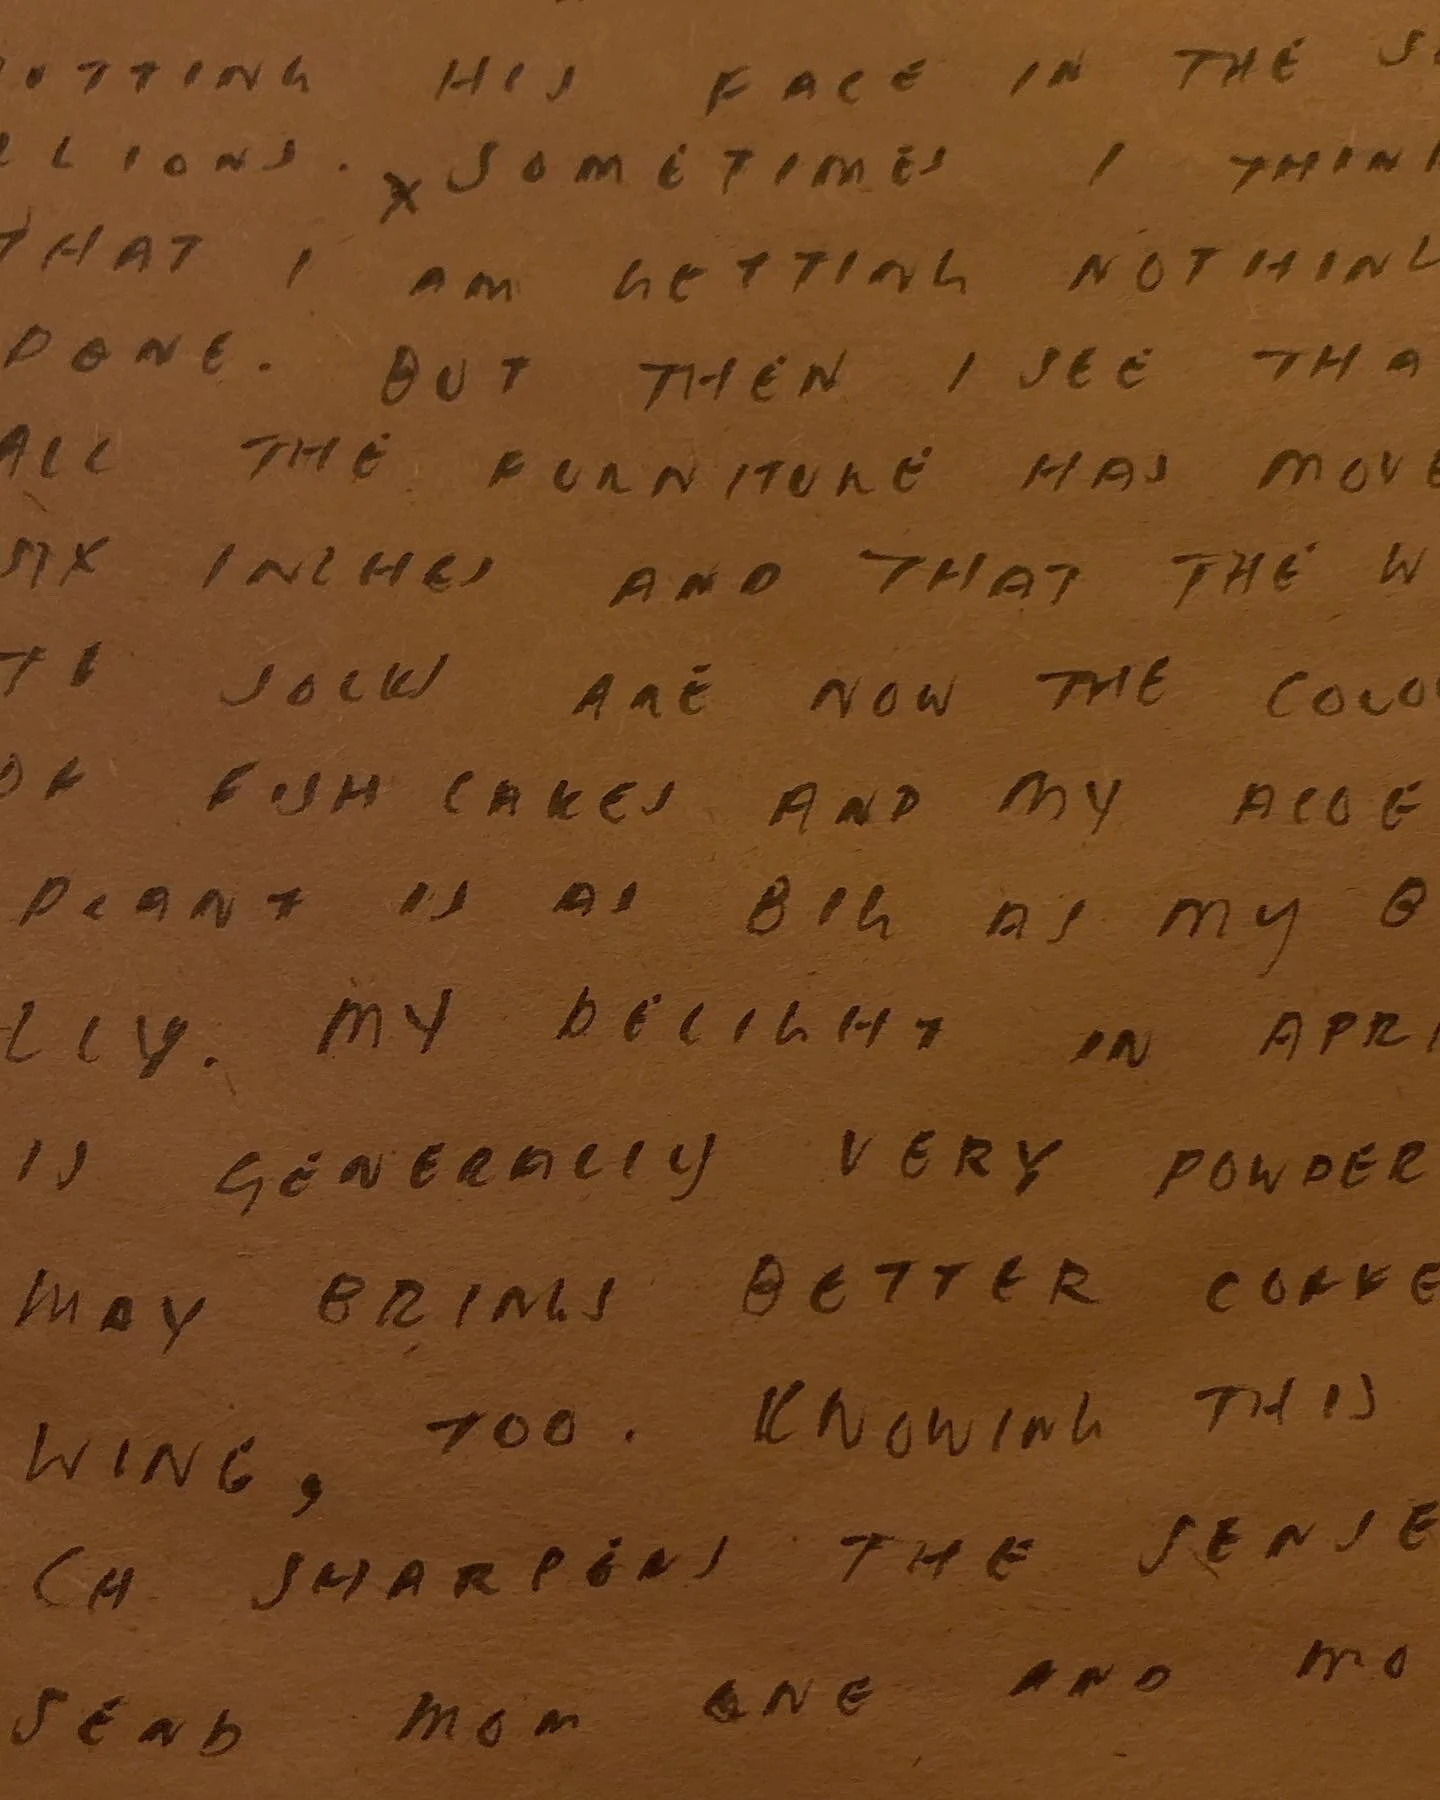 OTTING HIS FACE IN THE S
LLIONS. x SOMETIMES I THIN
THAT I AM GETTING NOTHING
DONE. BUT THEN I SEE THA
ALL THE FURNITURE HAS MOVE
SIX INCHES AND THAT THE W
TE SOCKS ARE NOW THE COLO
OF FISH CAKES AND MY ALOE
PLANT IS AS BIG AS MY B
LLY. MY DELIGHT IN APRI
IS GENERALLY VERY POWDER
MAY BRINGS BETTER COFFE
WING, TOO. KNOWING THIS
CH SHARPENS THE SENSE
SEND MOM ONE AND MO